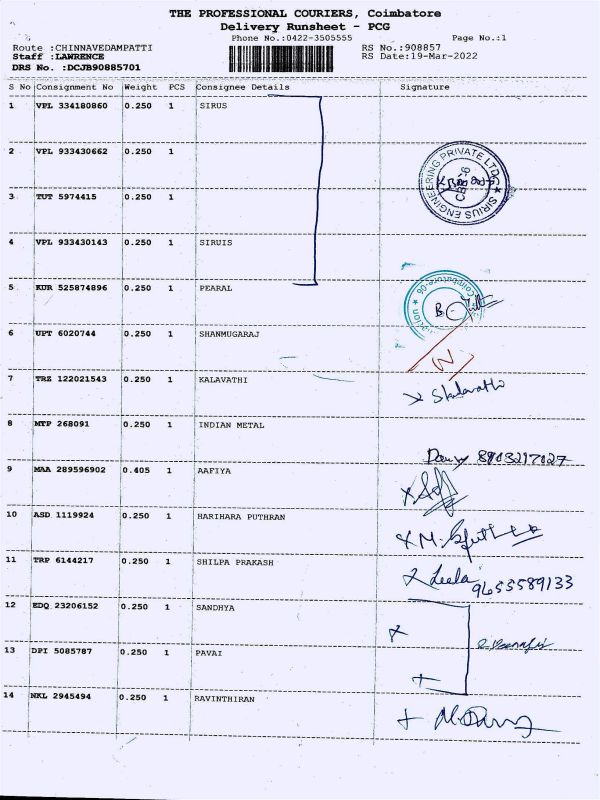 THE PROFESSIONAL COURIERS, Coimbatore
Delivery Runsheet - PCG
Phone No.:0422-3505555 Page No.:1
Route :CHINNAVEDAMPATTI RS No.:908857
Staff :LAWRENCE RS Date:19-Mar-2022
DRS No. :DCJB90885701
S No Consignment No Weight PCS Consignee Details Signature
1 VPL 334180860 0.250 1 SIRUS
2 VPL 933430662 0.250 1
SIRIUS ENGINEERING PRIVATE LTD
3 TUT 5974415 0.250 1
4 VPL 933430143 0.250 1 SIRUIS
5 KUR 525874896 0.250 1 PEARAL
Coimbatore-06
6 UPT 6020744 0.250 1 SHANMUGARAJ
7 TRZ 122021543 0.250 1 KALAVATHI
8 MTP 268091 0.250 1 INDIAN METAL
9 MAA 289596902 0.405 1 AAFIYA
10 ASD 1119924 0.250 1 HARIHARA PUTHRAN
11 TRP 6144217 0.250 1 SHILPA PRAKASH
Leela 9655589133
12 EDQ 23206152 0.250 1 SANDHYA
13 DPI 5085787 0.250 1 PAVAI
14 NKL 2945494 0.250 1 RAVINTHIRAN